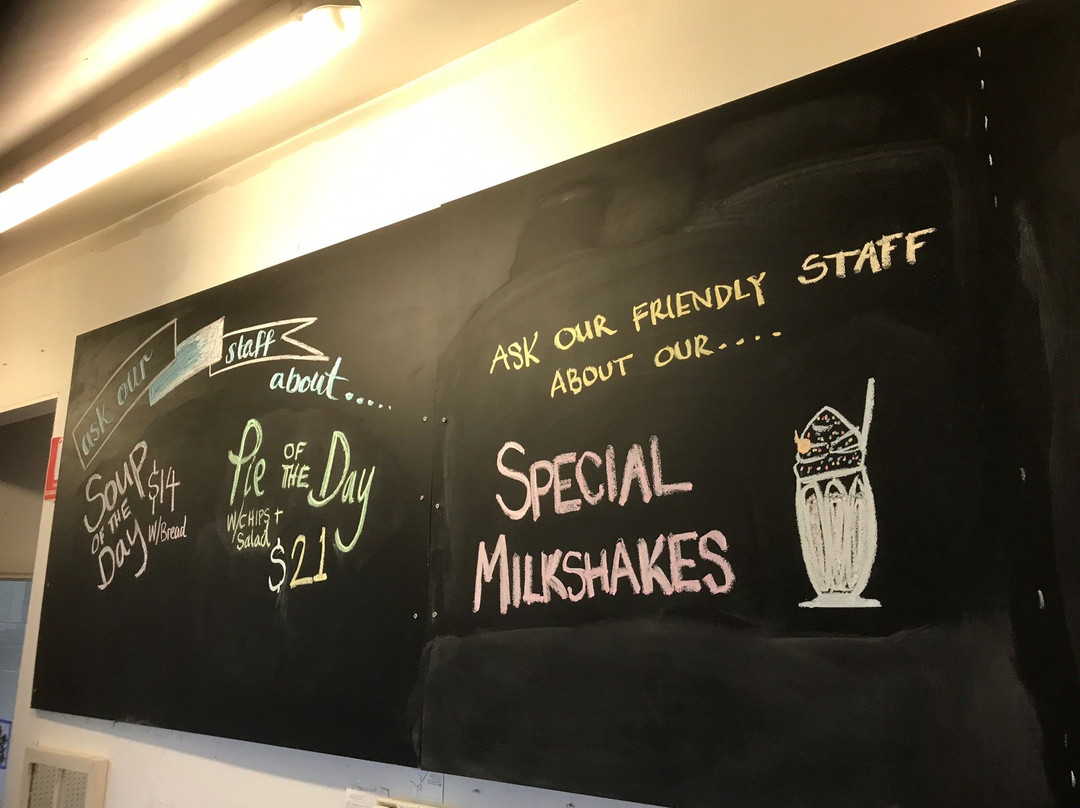 ask our
staff
about.....
SOUP
OF THE
Day
$14
W/Bread
Pie OF THE Day
W/CHIPS +
Salad
$21
ASK OUR FRIENDLY STAFF
ABOUT OUR....
SPECIAL
MILKSHAKES